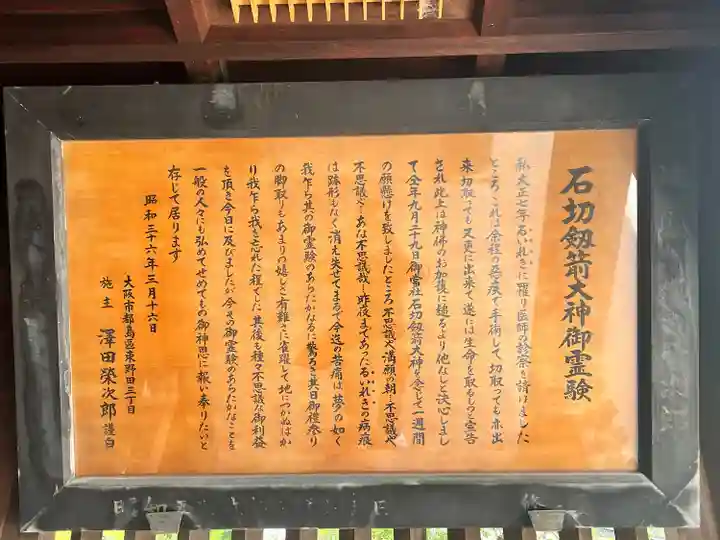 石切劔箭大神御霊験
私大正七年るいれきに罹り医師の診察を請けました
ところこれは余程の悪疫で手術して切取っても亦出
来切取っても又更に出来て遂には生命を取るものと宣告
され此上は神佛のお加護に縋るより他なしと決心しまし
て仝年九月二十九日御當社石切劔箭大神を念じて一週間
の願懸けを致しましたところ不思議や満願の朝…不思議や
不思議や…あな不思議哉、昨夜まであったるいれきの病痕
は跡形もなく消え失せてまるで今迄の苦痛は夢の如く
我乍ら其の御霊験のあらたかなるに驚ろき其日御禮参り
の脚取りもあまりの嬉しさ有難さに雀躍して地につかぬばか
り我乍ら我を忘れた程でした其後も種々不思議な御利益
を頂き今日に及びましたが今その御霊験のあらたかなことを
一般の人々にも弘めてせめてもの御神恩に報い奉りたいと
存じて居ります
昭和三十六年三月十六日
大阪市都島區東野田三丁目
施主 澤田榮次郎 謹白
昭和